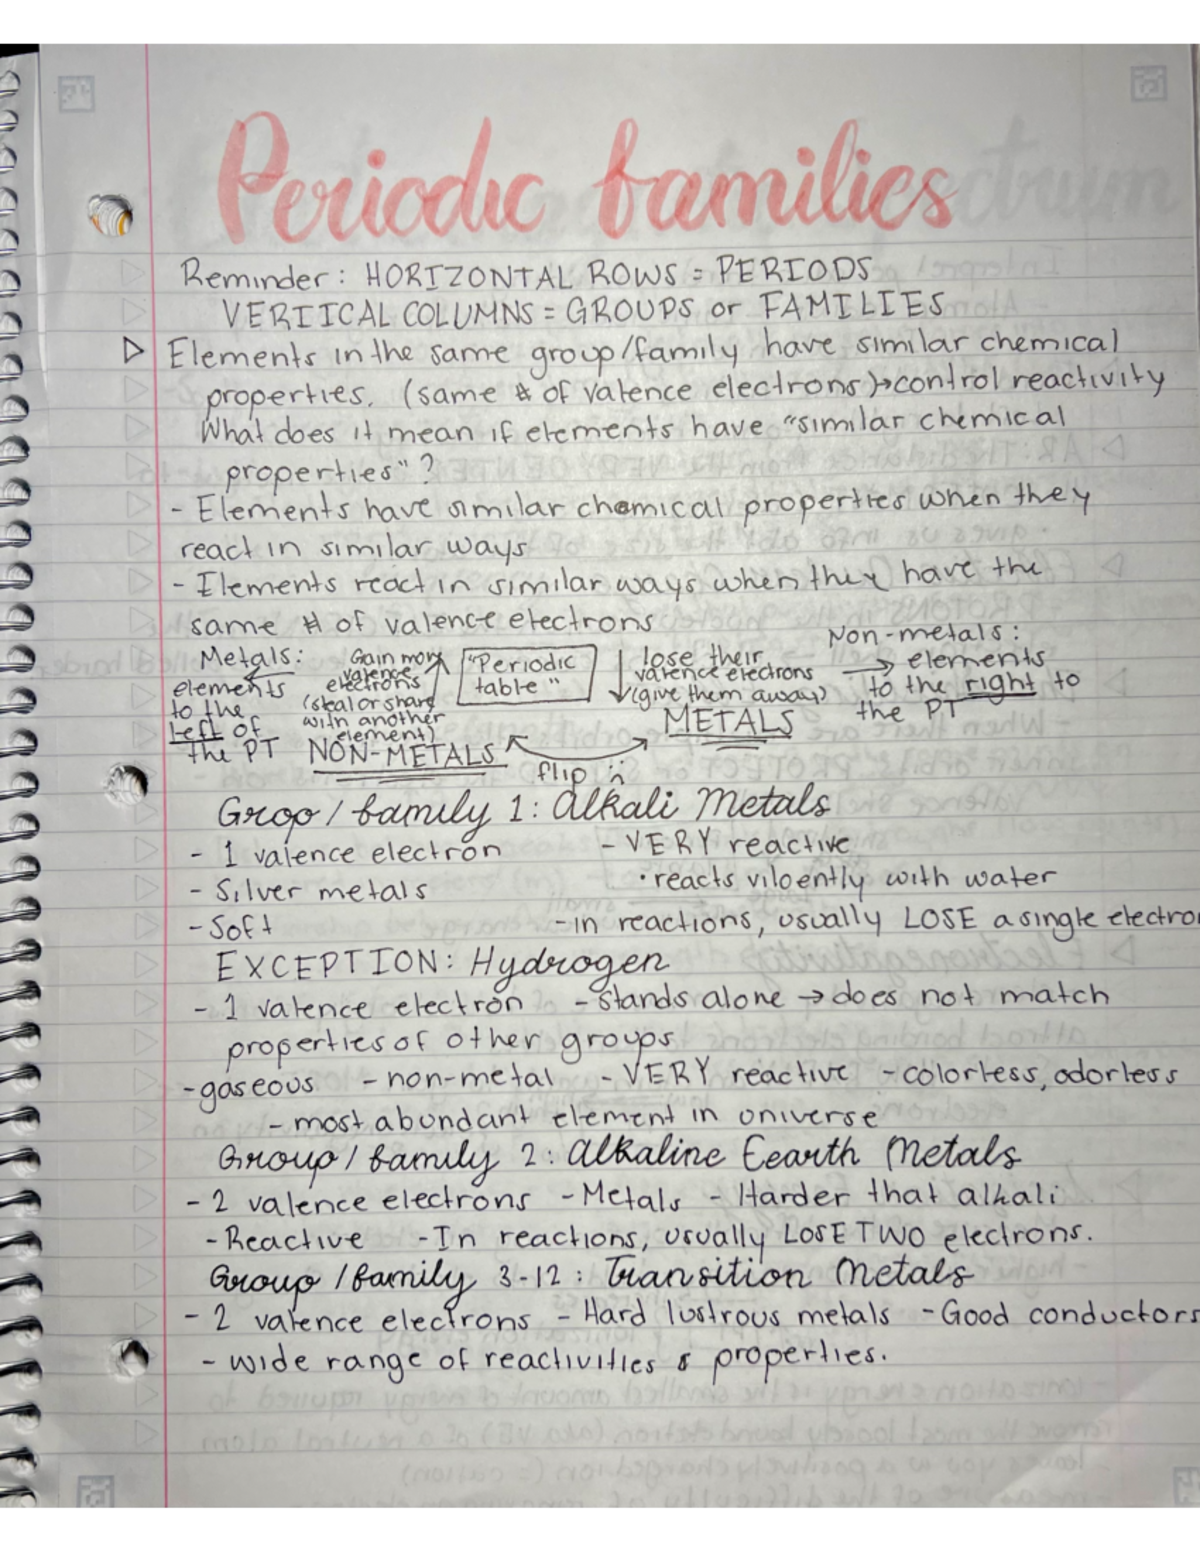 Periodic families
Reminder: HORIZONTAL ROWS = PERIODS
VERTICAL COLUMNS = GROUPS or FAMILIES
▷ Elements in the same group/family have similar chemical
properties. (same # of valence electrons)→control reactivity
What does it mean if elements have "similar chemical
properties"?
- Elements have similar chemical properties when they
react in similar ways
- Elements react in similar ways when they have the
same # of valence electrons
Metals:
elements
to the
left of
the PT
Gain more
valence
electrons
(steal or share
with another
element)
NON-METALS
"Periodic
table"
lose their
valence electrons
(give them away)
METALS
flip :)
Non-metals:
→ elements
to the right to
the PT
Grop/family 1: Alkali Metals
- 1 valence electron - VERY reactive
- Silver metals • reacts viloently with water
- Soft - in reactions, usually LOSE a single electron
EXCEPTION: Hydrogen
- 1 valence electron - Stands alone → does not match
properties of other groups
- gaseous - non-metal - VERY reactive - colorless, odorless
- most abundant element in universe
Group/family 2: Alkaline Eearth Metals
- 2 valence electrons - Metals - Harder that alkali
- Reactive - In reactions, usually LOSE TWO electrons.
Group/family 3-12: Transition Metals
- 2 valence electrons - Hard lustrous metals - Good conductors
- wide range of reactivities & properties.